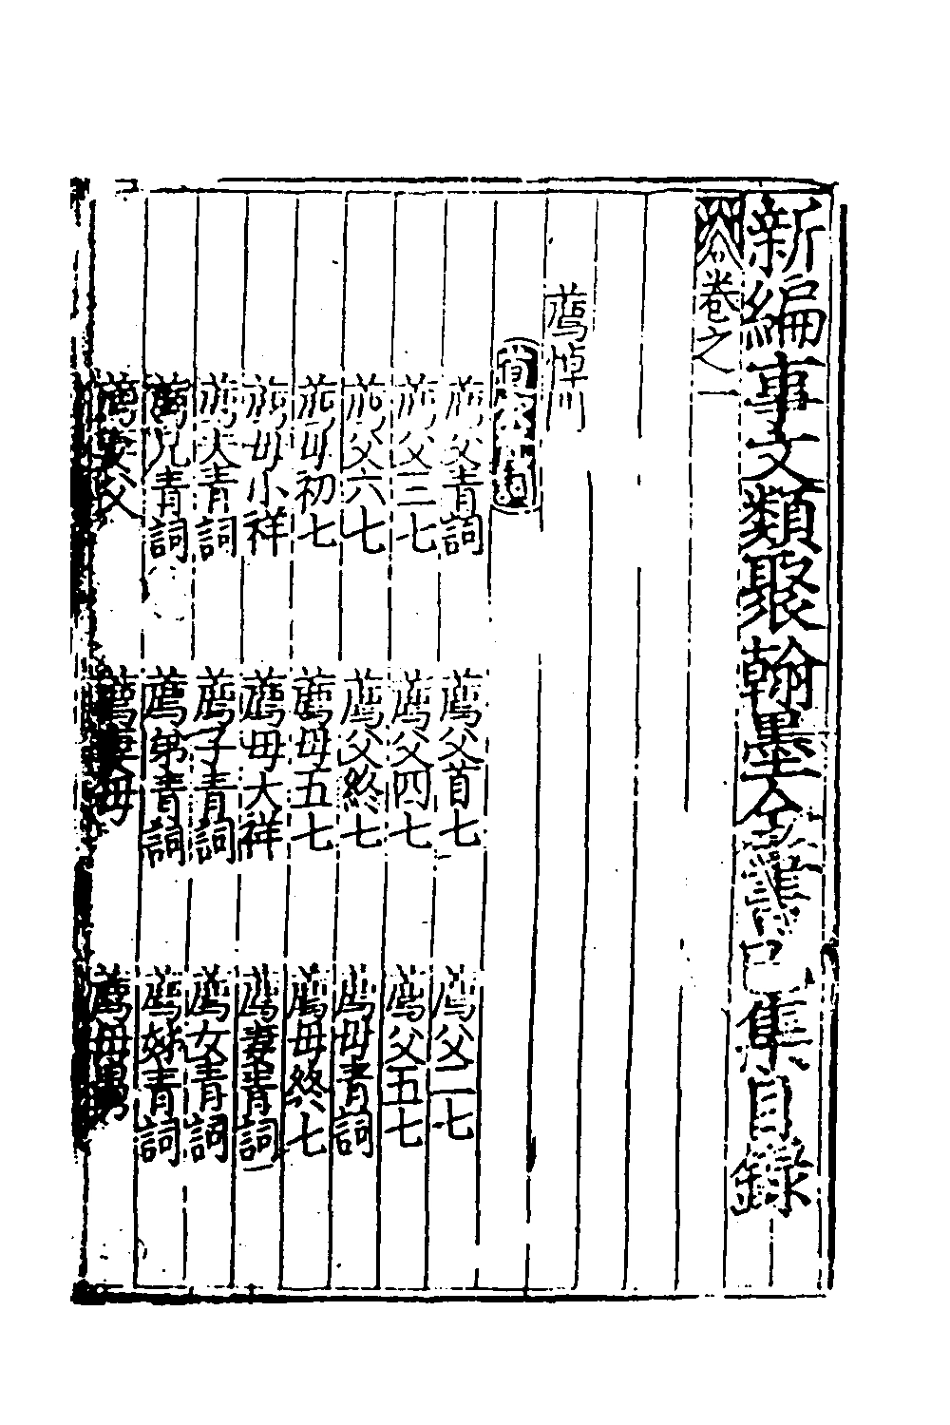 新編事文類聚翰墨全書己集目錄
卷之一
薦悼門
薦父青詞　薦父首七　薦父二七
薦父三七　薦父四七　薦父五七
薦父六七　薦父終七　薦母青詞
薦母初七　薦母五七　薦母終七
薦母小祥　薦母大祥　薦妻青詞
薦夫青詞　薦子青詞　薦女青詞
薦兄青詞　薦弟青詞　薦姊青詞
薦妻父　薦妻母　薦母舅